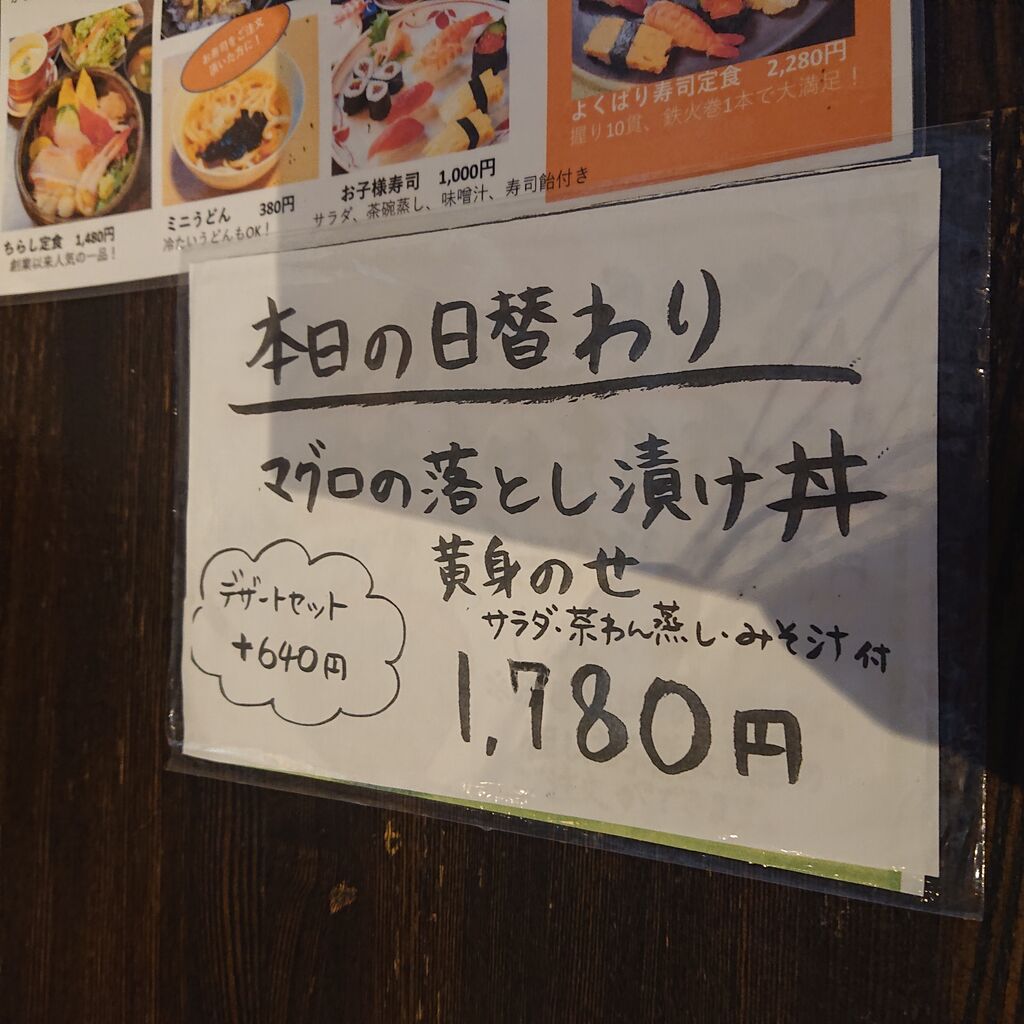 お寿司をご注文
頂いた方に!
ちらし定食 1,480円
創業以来人気の一品!
ミニうどん 380円
冷たいうどんもOK!
お子様寿司 1,000円
サラダ、茶碗蒸し、味噌汁、寿司飴付き
よくばり寿司定食 2,280円
握り10貫、鉄火巻1本で大満足!
本日の日替わり
マグロの落とし漬け丼
黄身のせ
サラダ・茶わん蒸し・みそ汁付
1,780円
デザートセット
+640円